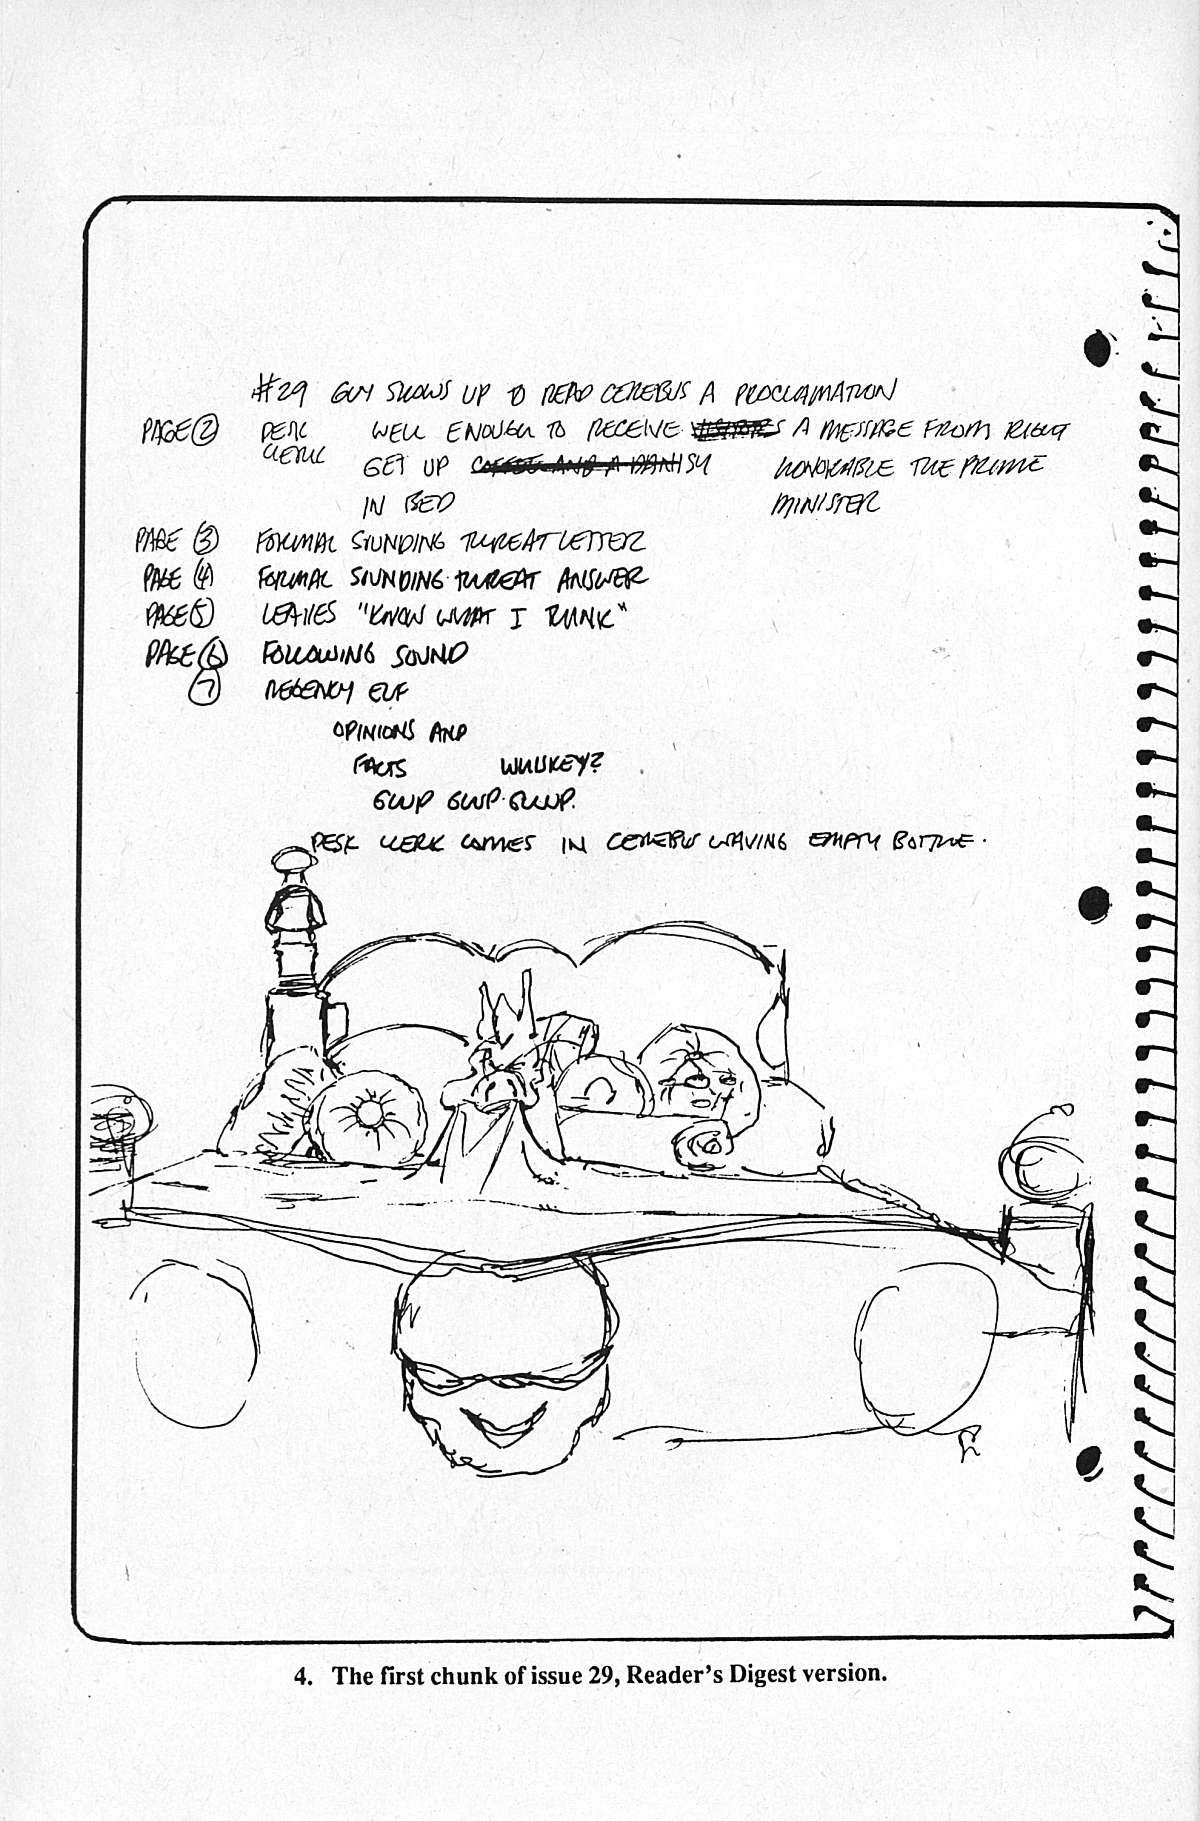 #29 GUY SHOWS UP TO READ CEREBUS A PROCLAMATION
PAGE 2 DESK CLERK WELL ENOUGH TO RECEIVE VISITORS A MESSAGE FROM RIGHT
GET UP COFFEE AND A DANISH HONORABLE THE PRIME
IN BED MINISTER
PAGE 3 FORMAL SOUNDING THREAT LETTER
PAGE 4 FORMAL SOUNDING THREAT ANSWER
PAGE 5 LEAVES "KNOW WHAT I THINK"
PAGE 6 FOLLOWING SOUND
7 REGENCY ELF
OPINIONS AND
FACTS WHISKEY?
GLUP GLUP GLUP.
DESK CLERK COMES IN CEREBUS WAVING EMPTY BOTTLE.
4. The first chunk of issue 29, Reader's Digest version.